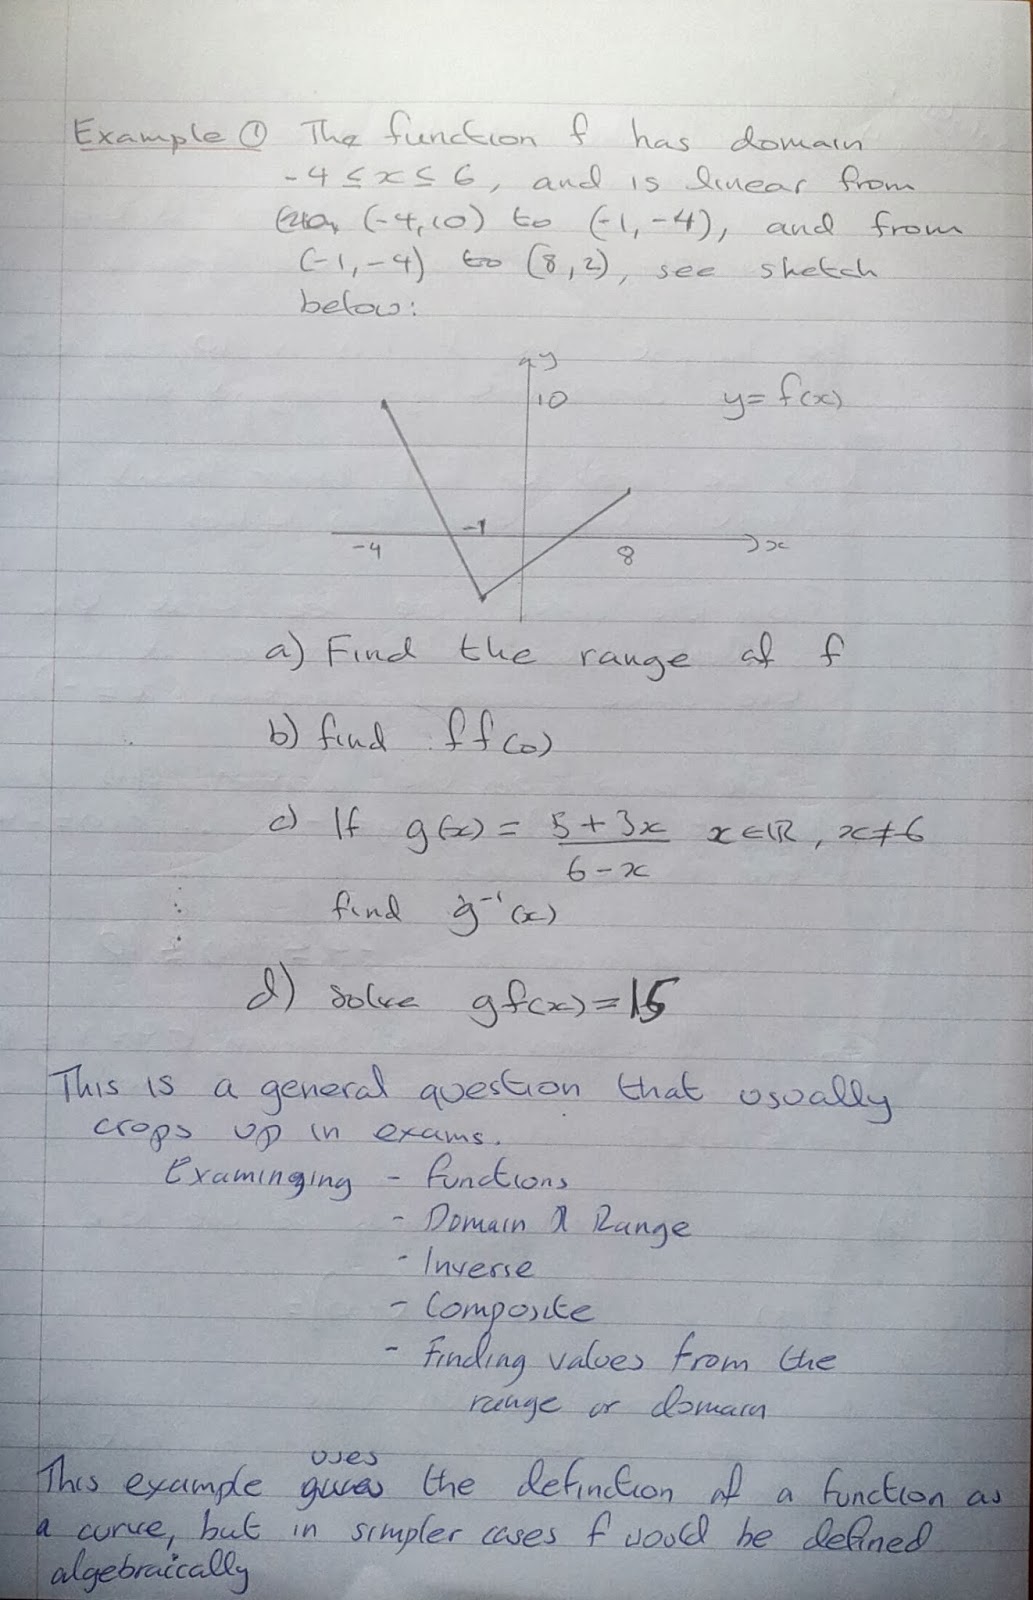 Example ① The function f has domain
-4 ≤ x ≤ 6, and is linear from
(-4,10) to (-1,-4), and from
(-1,-4) to (8,2), see sketch
below:
y
10
y= f(x)
-1
-4
8
x
a) Find the range of f
b) find ff(0)
c) If g(x) = 5+3x x∈ℝ, x≠6
6-x
find g⁻¹(x)
d) solve gf(x)=15
This is a general question that usually
crops up in exams.
Examinging - functions
- Domain & Range
- Inverse
- Composite
- Finding values from the
range or domain
uses
This example gives the definction of a function as
a curve, but in simpler cases f would be defined
algebraically